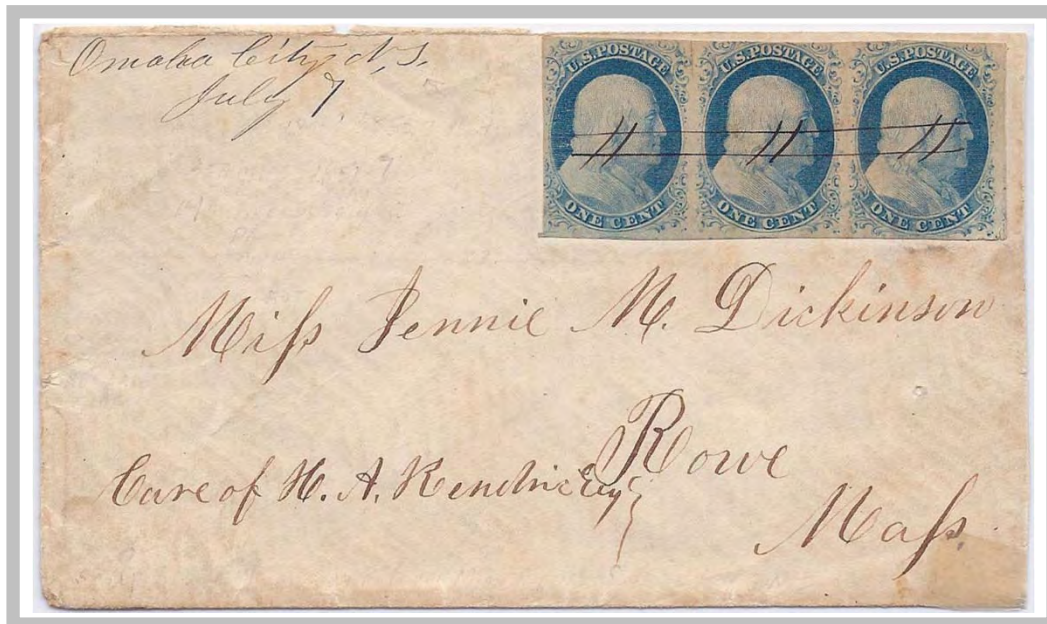 Omaha City N. T.
July 7
U.S. POSTAGE U.S. POSTAGE U.S. POSTAGE
ONE CENT ONE CENT ONE CENT
Miſs Jennie M. Dickinson
Rowe
Care of H. A. Kendrick Esq
Maſs.